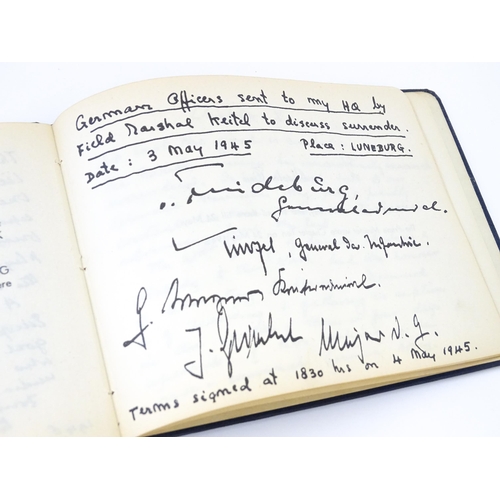 German Officers sent to my HQ by
Field Marshal Keitel to discuss surrender.
Date: 3 May 1945 Place: LUNEBURG.
Friedeburg,
Generaladmiral.
Kinzel, General der Infanterie.
G. Wagner Konteradmiral.
J. Friedel Major i. G.
Terms signed at 1830 hrs on 4 May 1945.
K
G
ere